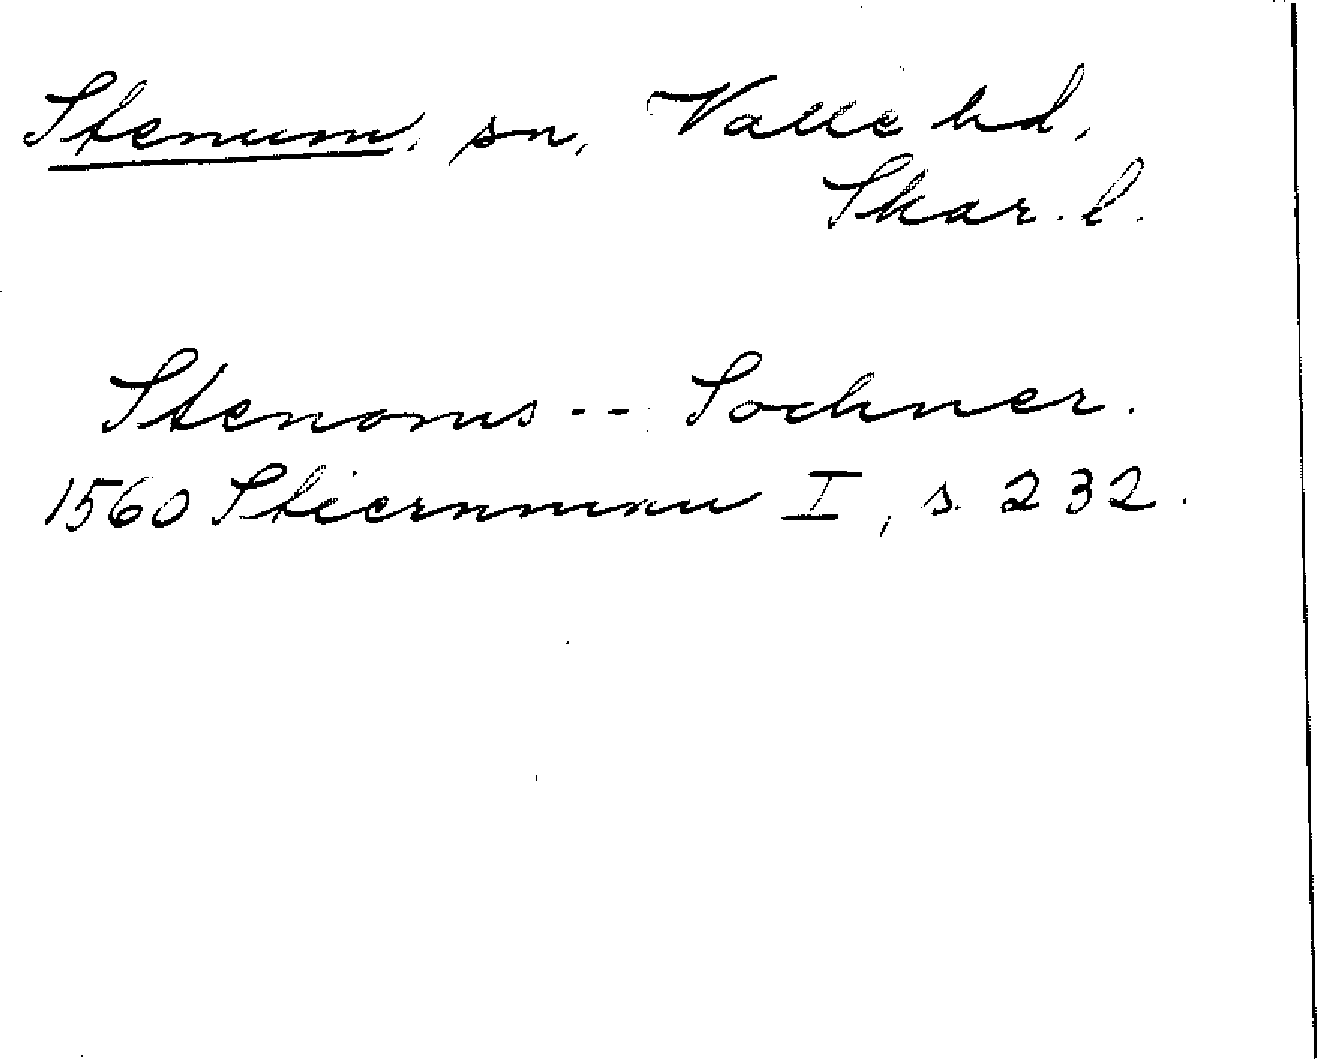 Stenum, sn, Valle hd,
Skar. l.
Stenoms -- Sochner.
1560 Stiernman I, s. 232.